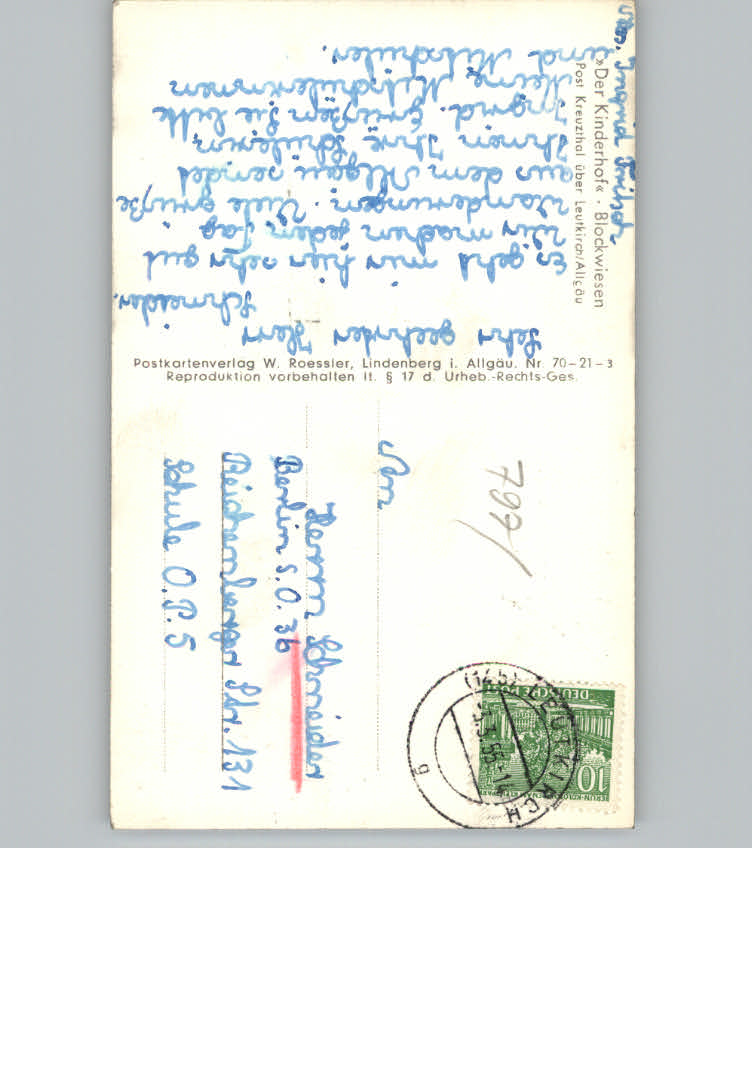 Abs. Ingrid Fritsch
»Der Kinderhof« · Blockwiesen
Post Kreuzthal über Leutkirch/Allgäu
Sehr geehrter Herr
Schneider.
Es geht mir hier sehr gut
Wir machen jeden Tag
Wanderungen. Viele grüße
aus dem Allgäu sendet
Ihnen Ihre Schülerin
Ingrid. Grüßen Sie bitte
Meine Mitschülerinnen
und Mitschüler.
Postkartenverlag W. Roessler, Lindenberg i. Allgäu. Nr. 70-21-3
Reproduktion vorbehalten lt. § 17 d. Urheb.-Rechts-Ges.
797/
An
Herrn Schneider
Berlin S.O. 36
Reichenberger Str. 131
Schule O.P.5
LEUTKIRCH
10
DEUTSCHE POST